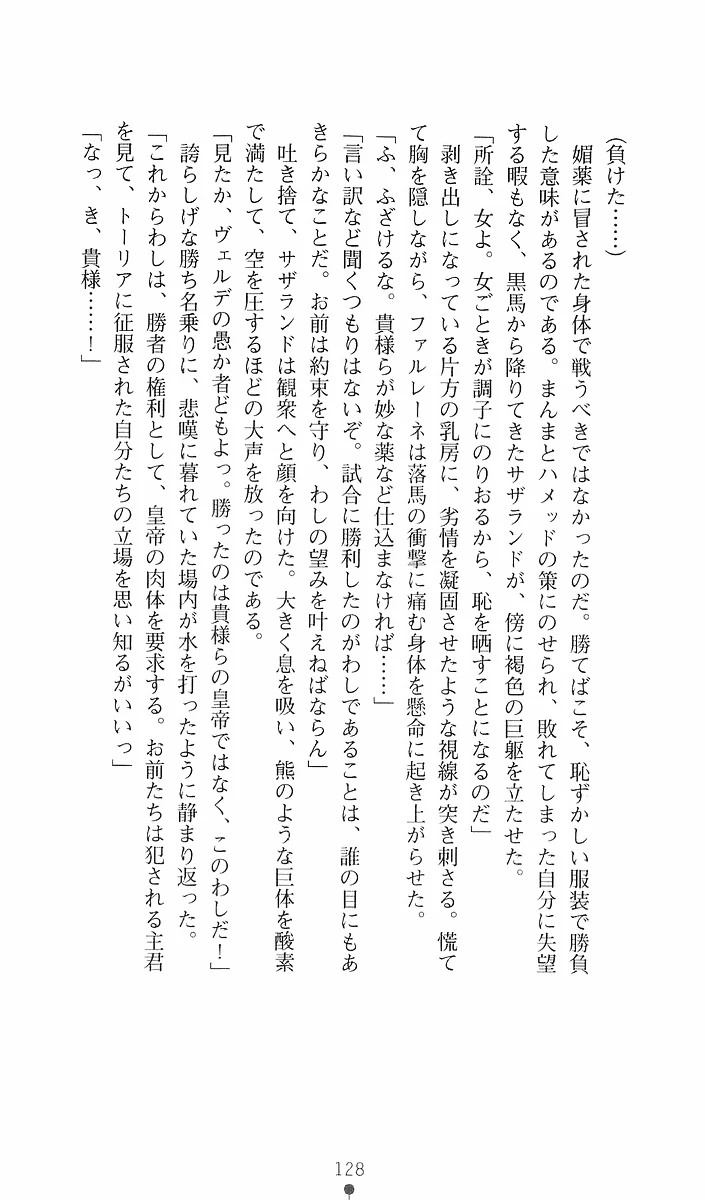 (負けた……)
　媚薬に冒された身体で戦うべきではなかったのだ。勝てばこそ、恥ずかしい服装で勝負
した意味があるのである。まんまとハメッドの策にのせられ、敗れてしまった自分に失望
する暇もなく、黒馬から降りてきたサザランドが、傍に褐色の巨躯を立たせた。
「所詮、女よ。女ごときが調子にのりおるから、恥を晒すことになるのだ」
　剥き出しになっている片方の乳房に、劣情を凝固させたような視線が突き刺さる。慌て
て胸を隠しながら、ファルレーネは落馬の衝撃に痛む身体を懸命に起き上がらせた。
「ふ、ふざけるな。貴様らが妙な薬など仕込まなければ……」
「言い訳など聞くつもりはないぞ。試合に勝利したのがわしであることは、誰の目にもあ
きらかなことだ。お前は約束を守り、わしの望みを叶えねばならん」
　吐き捨て、サザランドは観衆へと顔を向けた。大きく息を吸い、熊のような巨体を酸素
で満たして、空を圧するほどの大声を放ったのである。
「見たか、ヴェルデの愚か者どもよっ。勝ったのは貴様らの皇帝ではなく、このわしだ！」
　誇らしげな勝ち名乗りに、悲嘆に暮れていた場内が水を打ったように静まり返った。
「これからわしは、勝者の権利として、皇帝の肉体を要求する。お前たちは犯される主君
を見て、トーリアに征服された自分たちの立場を思い知るがいいっ」
「なっ、き、貴様……！」
128